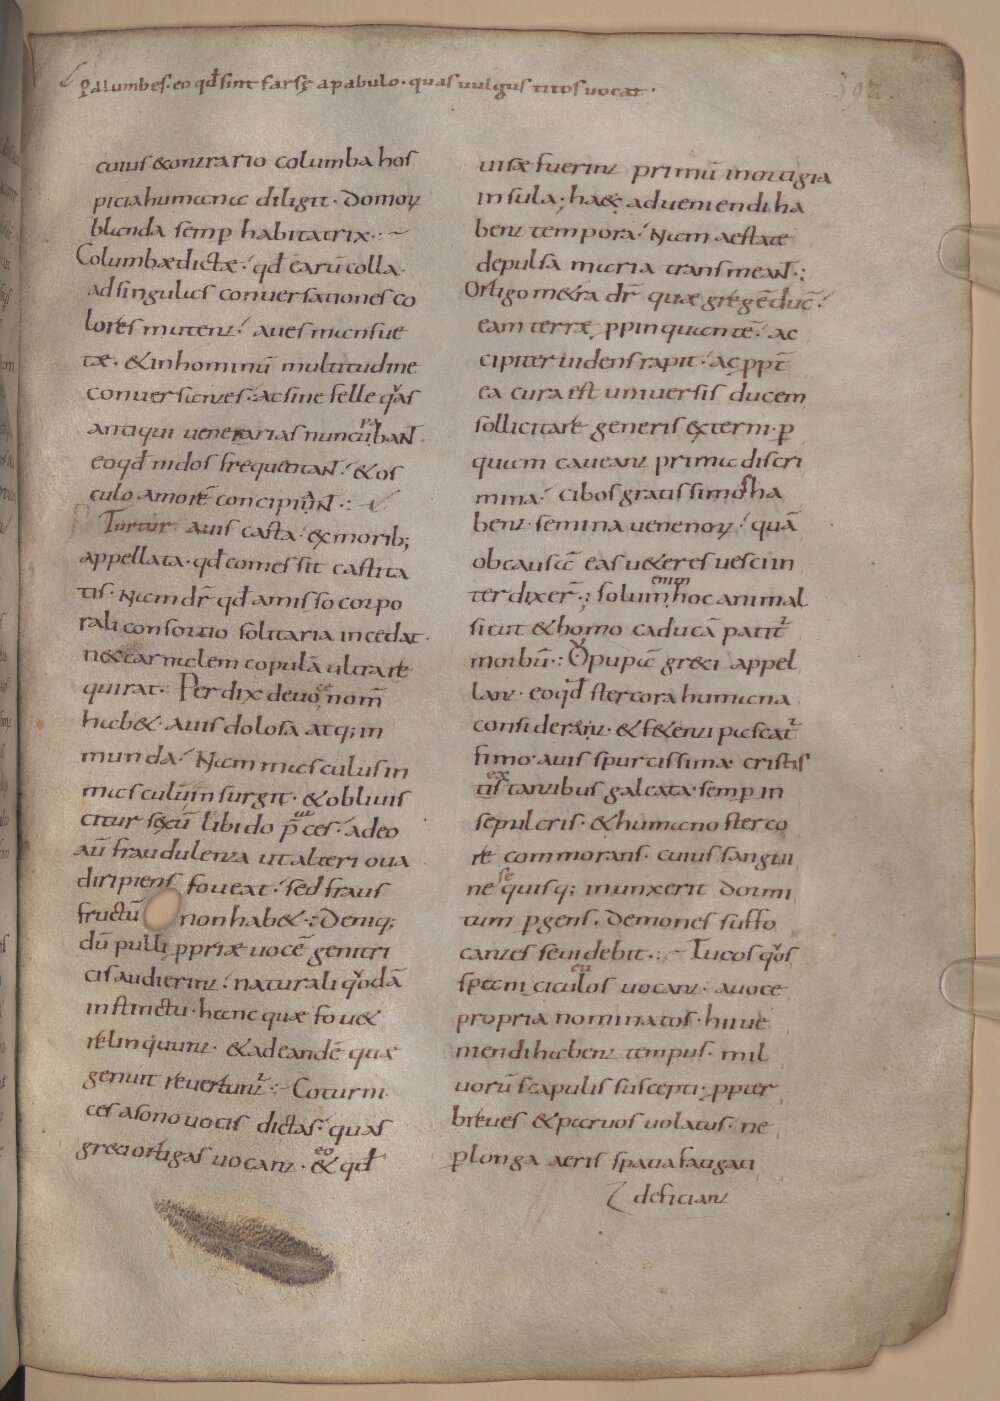 Palumbes· eo qd̄ sint farsę a pabulo· quas vulgus titos uocat·
192
cuius & contrario columba hos
picia humana diligit· domoꝝ
blanda semꝑ habitatrix·:~
Columbæ dictæ· qd̄ earū colla·
ad singulas conuersationes co
lores mutent· aues mansue
tæ· & in hominū multitudine
conuersantes· ac sine felle qͦas
antiqui uenerarias nuncupabaN̄·
eo qd̄ nidos frequentaN̄· & os
culo amorē concipiuN̄·:
Turtur auis casta· ex morib;
appellata· qd̄ comes sit castita
tis· Nam dr̄ qd̄ amisso corpo
rali consortio solitaria incedat·
nec carnalem copulā ultra re
quirat·: Perdix de uoce nom̄
hab&· auis dolosa atq; in
munda· Nam masculus in
masculū insurgit· & obliuis
citur sexū libido p̄ceps· adeo
aū fraudulenta ut alteri oua
diripiens foueat· sed fraus
fructū non hab&·: Deniq;
dū pulli ꝓpriæ uocē genitri
cis audierint· naturali qͦdā
instinctu· hanc quæ fou&
relinquunt· & ad eandē quæ
genuit reuertunt᷑·:~ Coturni
ces a sono uocis dictas· quas
greci ortigas uocant· & eo qd̄
uisæ fuerint primū in ortigia
insula·; haec adueniendi ha
bent tempora· Nam aestate
depulsa maria transmeaN̄·:
Ortigometra dr̄ quæ gregē ducit̄·
eam terræ ꝓpinquantē· ac
cipiter uidens rapit· ac ꝓpt̄
ea cura est uniuersis ducem
sollicitare generis externi· ꝑ
quam caueant prima discri
mina· Cibos gratissimos ha
bent· semina uenenoꝝ· quā
ob causā eas ueteres uesci in
terdixer̄·: solum enim hoc animal
sicut & homo caducā patit᷑
morbū·: Opupā greci appel
lant· eo qd̄ stercora humana
consideret· & fetenti pascat᷑
fimo· auis spurcissimæ cristis
extantibus galeata· semꝑ in
sepulcris· & humano sterco
re commorans· cuius sangui
ne se quisq; inunxerit dormi
tum ꝑgens· demones suffo
cantes se uidebit·:~ Tucos qͦs
spani ciculos uocant· a uoce
propria nominatos· hi ue
niendi habent tempus· mil
uorū scapulis suscepti· ꝓpter
breues & paruos uolatus· ne
ꝑ longa aeris spatia fatigati
deficiant